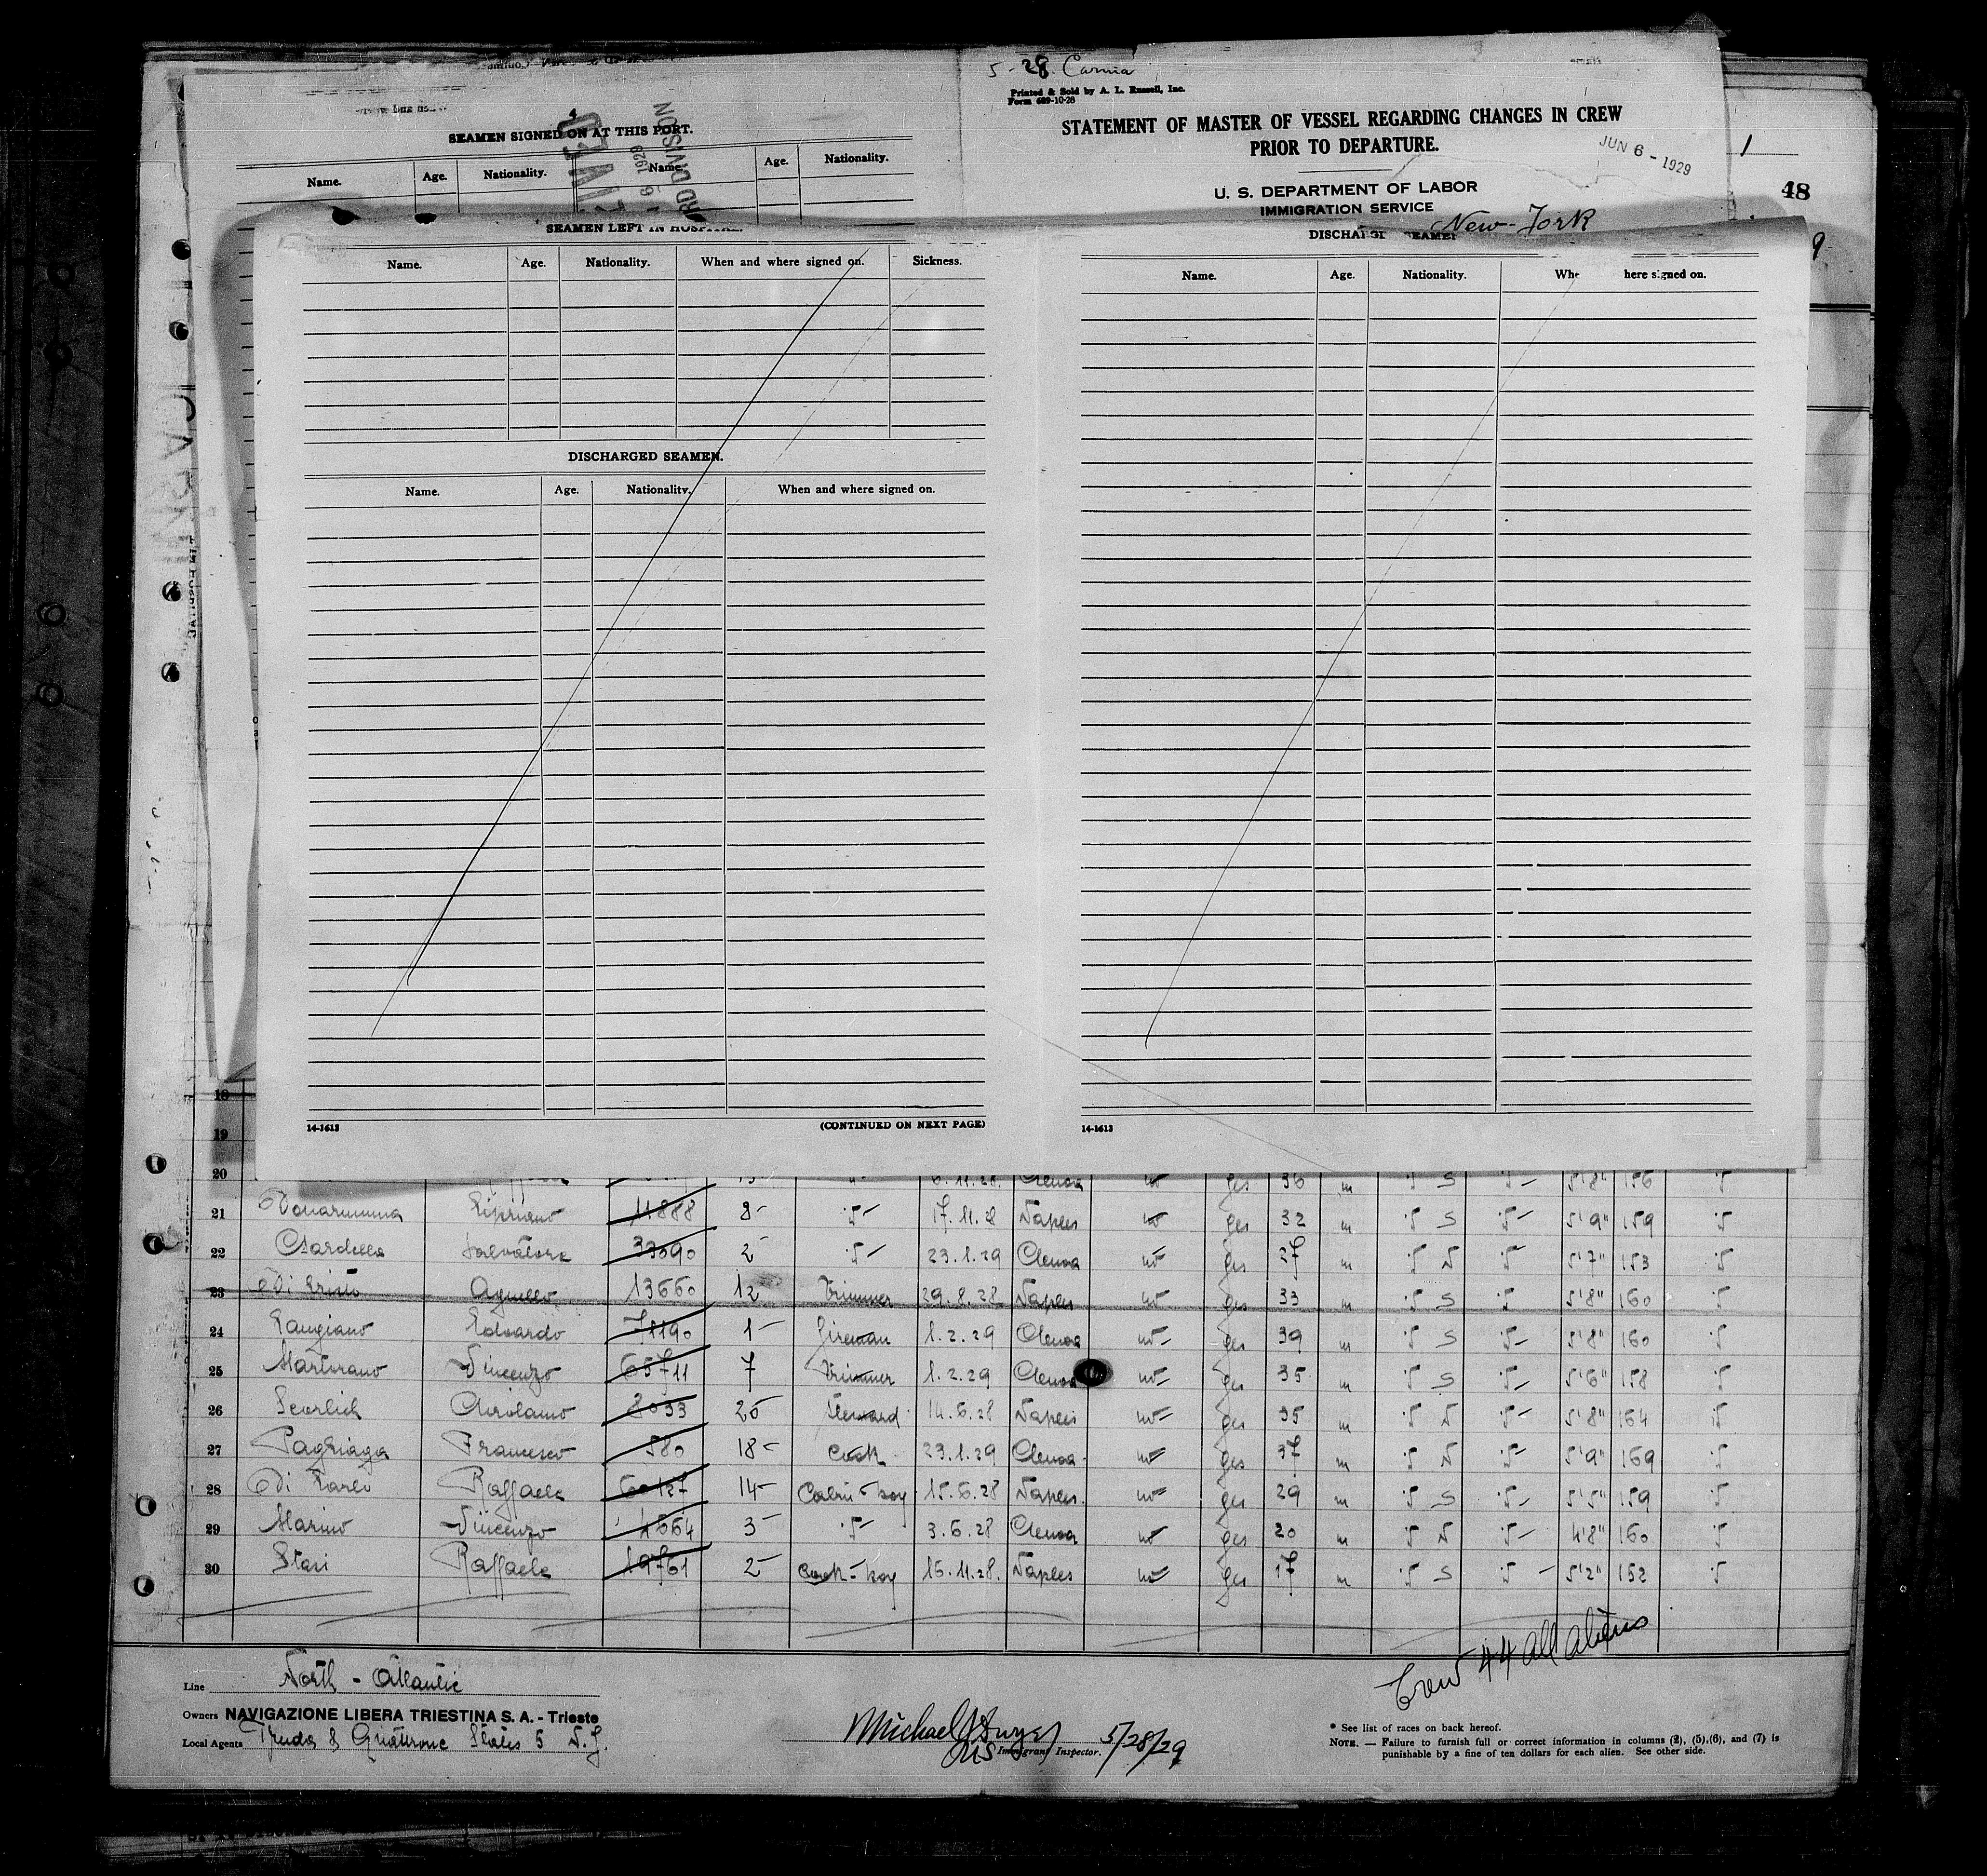 5-28. Carnia
Printed & Sold by A. L. Russell, Inc.
Form 689-10-28
STATEMENT OF MASTER OF VESSEL REGARDING CHANGES IN CREW
PRIOR TO DEPARTURE.
JUN 6 - 1929
U. S. DEPARTMENT OF LABOR
IMMIGRATION SERVICE
New-York
1
48
4
SEAMEN SIGNED ON AT THIS PORT.
Name. Age. Nationality. Name. Age. Nationality.
SEAMEN LEFT IN HOSPITAL.
Name. Age. Nationality. When and where signed on. Sickness.
DISCHARGED SEAMEN.
Name. Age. Nationality. When and where signed on.
14-1613 (CONTINUED ON NEXT PAGE)
DISCHARGED SEAMEN
Name. Age. Nationality. Whe here signed on.
14-1613
18
19
20 6.11.28. Genoa no yes 36 m " S "- 5'8" 156 "
21 11888 8- "- 17.11.28 Naples no yes 32 m " S "- 5'9" 159 "
22 Salvatore 33090 2- "- 23.1.29 Genoa no yes 27 m " N " 5'7" 153 "
23 Di Cristo Agnello 13660 12 Trimmer 29.8.28 Naples no yes 33 m " S " 5'8" 160 "
24 Langiano Edoardo 71190 1- Fireman 1.2.29 Genoa no yes 39 m " S "- 5'8" 160 "
25 Martorano Vincenzo 65711 7 Trimmer 1.2.29 Genoa no yes 35 m " S "- 5'6" 158 "
26 Scorlich Girolamo 8033 20 Steward 14.6.28 Naples no yes 35 m " N "- 5'8" 164 "
27 Francesco 580 18- Cook 23.1.29 Genoa no yes 37 m " N "- 5'9" 169 "
28 Di Carlo Raffaele 60127 14- Cabin-boy 15.6.28 Naples no yes 29 m " S "- 5'5" 159 "
29 Marino Vincenzo 4664 3- "- 3.6.28 Genoa no yes 20 m " N "- 4'8" 160 "
30 Stasi Raffaele 19761 2- Cook-boy 15.11.28. Naples no yes 17 m " S "- 5'2" 152 "
Crew 44 all aliens
Line North - Atlantic
Owners NAVIGAZIONE LIBERA TRIESTINA S. A. - Trieste
Local Agents
Michael
Immigrant Inspector. 5/28/29
* See list of races on back hereof.
NOTE. — Failure to furnish full or correct information in columns (2), (5), (6), and (7) is
punishable by a fine of ten dollars for each alien. See other side.